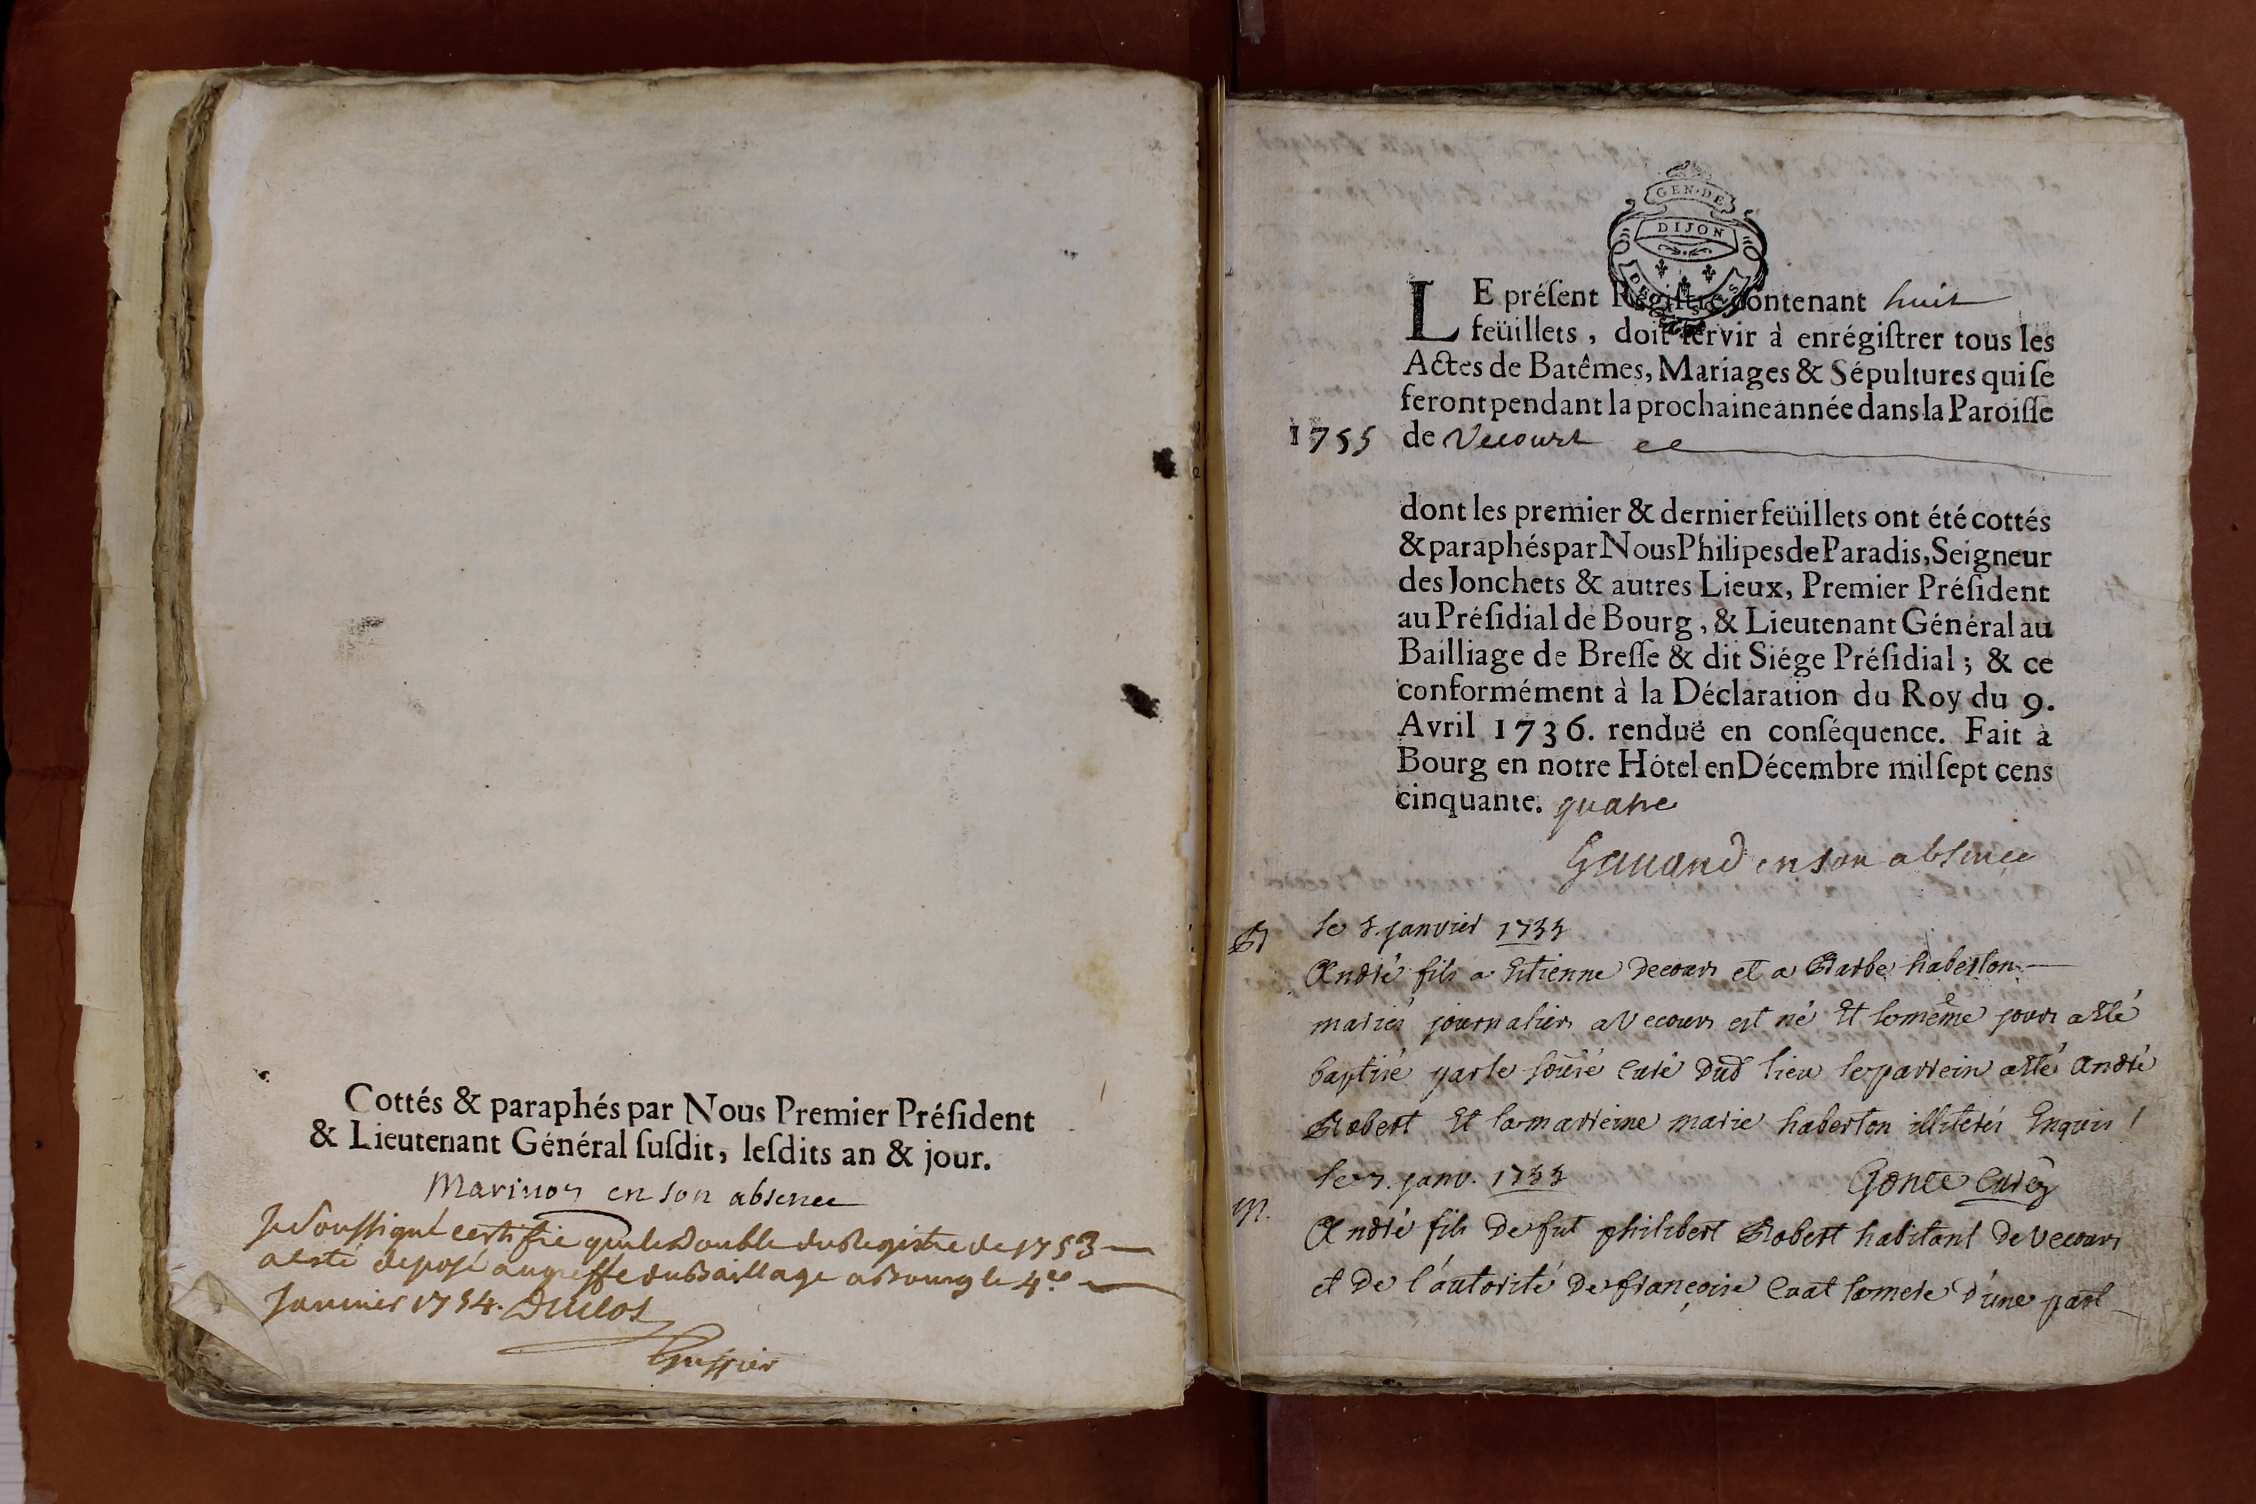 Cottés & paraphés par Nous Premier Préſident
& Lieutenant Général ſuſdit, leſdits an & jour.
en son absence
Je Soussigné certifie que le Double du Registre de 1753
a esté deposé au greffe du Baillage a Bourg le 4e
Janvier 1754. Duclos
Greffier
GEN·DE
DIJON
LE préſent Régiſtre contenant huit
feüillets, doit ſervir à enrégiſtrer tous les
Actes de Batêmes, Mariages & Sépultures qui ſe
feront pendant la prochaine année dans la Paroiſſe
1755 de Vecourt
dont les premier & dernier feüillets ont été cottés
& paraphés par Nous Philipes de Paradis, Seigneur
des Jonchets & autres Lieux, Premier Préſident
au Préſidial de Bourg, & Lieutenant Général au
Bailliage de Breſſe & dit Siége Préſidial; & ce
conformément à la Déclaration du Roy du 9.
Avril 1736. renduë en conſéquence. Fait à
Bourg en notre Hôtel en Décembre mil ſept cens
cinquante. quatre
en son absence
B le 5. janvier 1755
André fils a Etienne Decour et a Barbe haberton
mariés journaliers a Vecours est né Et le même jour a Eté
baptisé par le soûsé Curé dud lieu le parrein a Eté André
Robert Et la marreine marie haberton illiterés Enquis /
le 7. janv. 1755 Gonce Curé
M. André fils de fut philibert Robert habitant de Vecours
et de l'autorité de françoise la mere d'une part